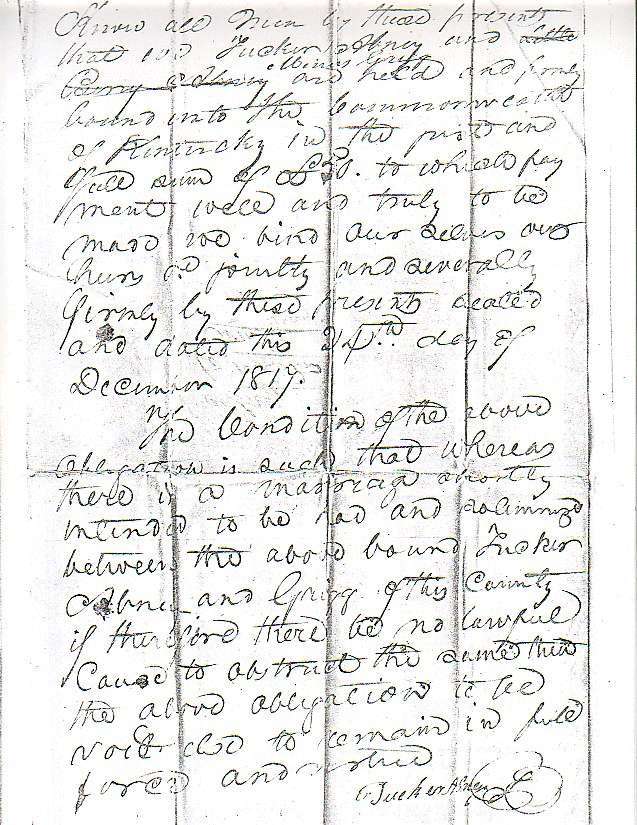 Know all Men by these presents
that we Tucker Abney and
Moses Grigg
are held and firmly
bound unto the Commonwealth
of Kentucky in the just and
full sum of £50. to which pay
ment well and truly to be
made we bind our selves our
heirs &c jointly and severally
firmly by these presents sealed
and dated this 24th day of
December 1817.
The Condition of the above
obligation is such that whereas
there is a marriage shortly
intended to be had and solemnized
between the above bound Tucker
Abney and Grigg of this County
if therefore there be no lawful
Cause to obstruct the same then
the above obligation to be
void else to remain in full
force and virtue
Tucker Abney